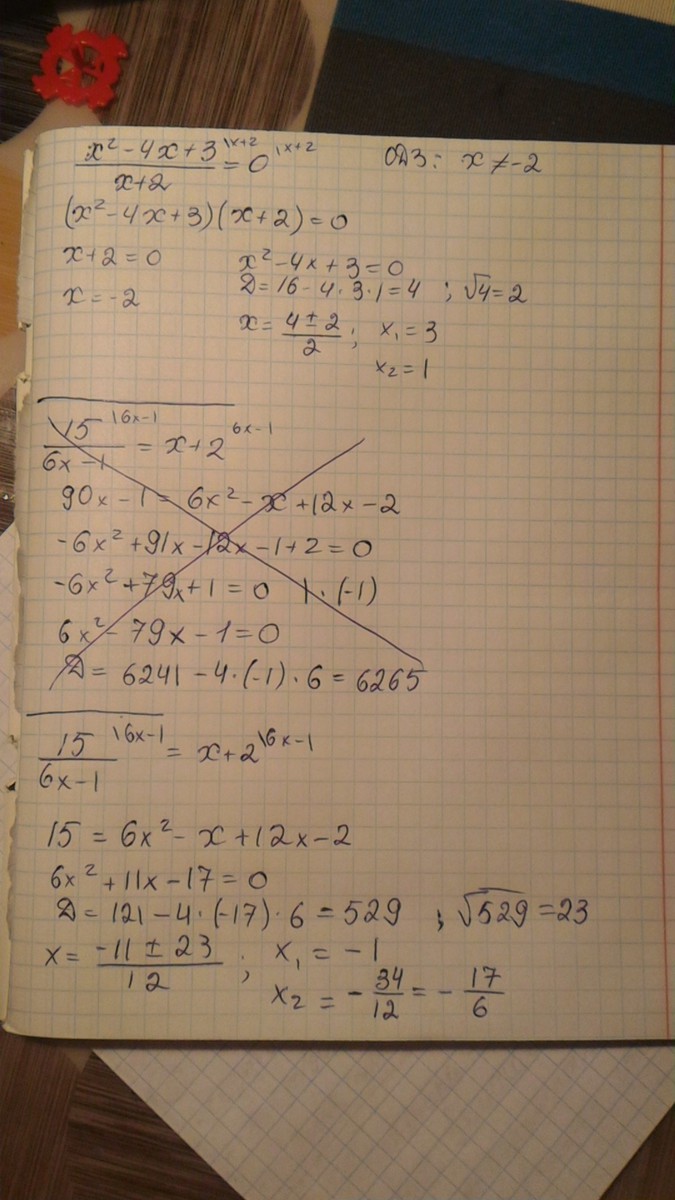 x² - 4x + 3 \x+2 / x+2 = 0 \x+2 ОДЗ: x ≠ -2
(x² - 4x + 3)(x + 2) = 0
x + 2 = 0 x² - 4x + 3 = 0
x = -2 Д = 16 - 4 · 3 · 1 = 4 ; √4 = 2
x = (4 ± 2) / 2 ; x₁ = 3
x₂ = 1
15 \6x-1 / 6x - 1 = x + 2 6x-1
90x - 1 = 6x² - x + 12x - 2
-6x² + 91x - 12x - 1 + 2 = 0
-6x² + 79x + 1 = 0 | · (-1)
6x² - 79x - 1 = 0
Д = 6241 - 4 · (-1) · 6 = 6265
15 \6x-1 / 6x - 1 = x + 2 \6x-1
15 = 6x² - x + 12x - 2
6x² + 11x - 17 = 0
Д = 121 - 4 · (-17) · 6 = 529 ; √529 = 23
x = (-11 ± 23) / 12 ; x₁ = -1
x₂ = -34/12 = -17/6